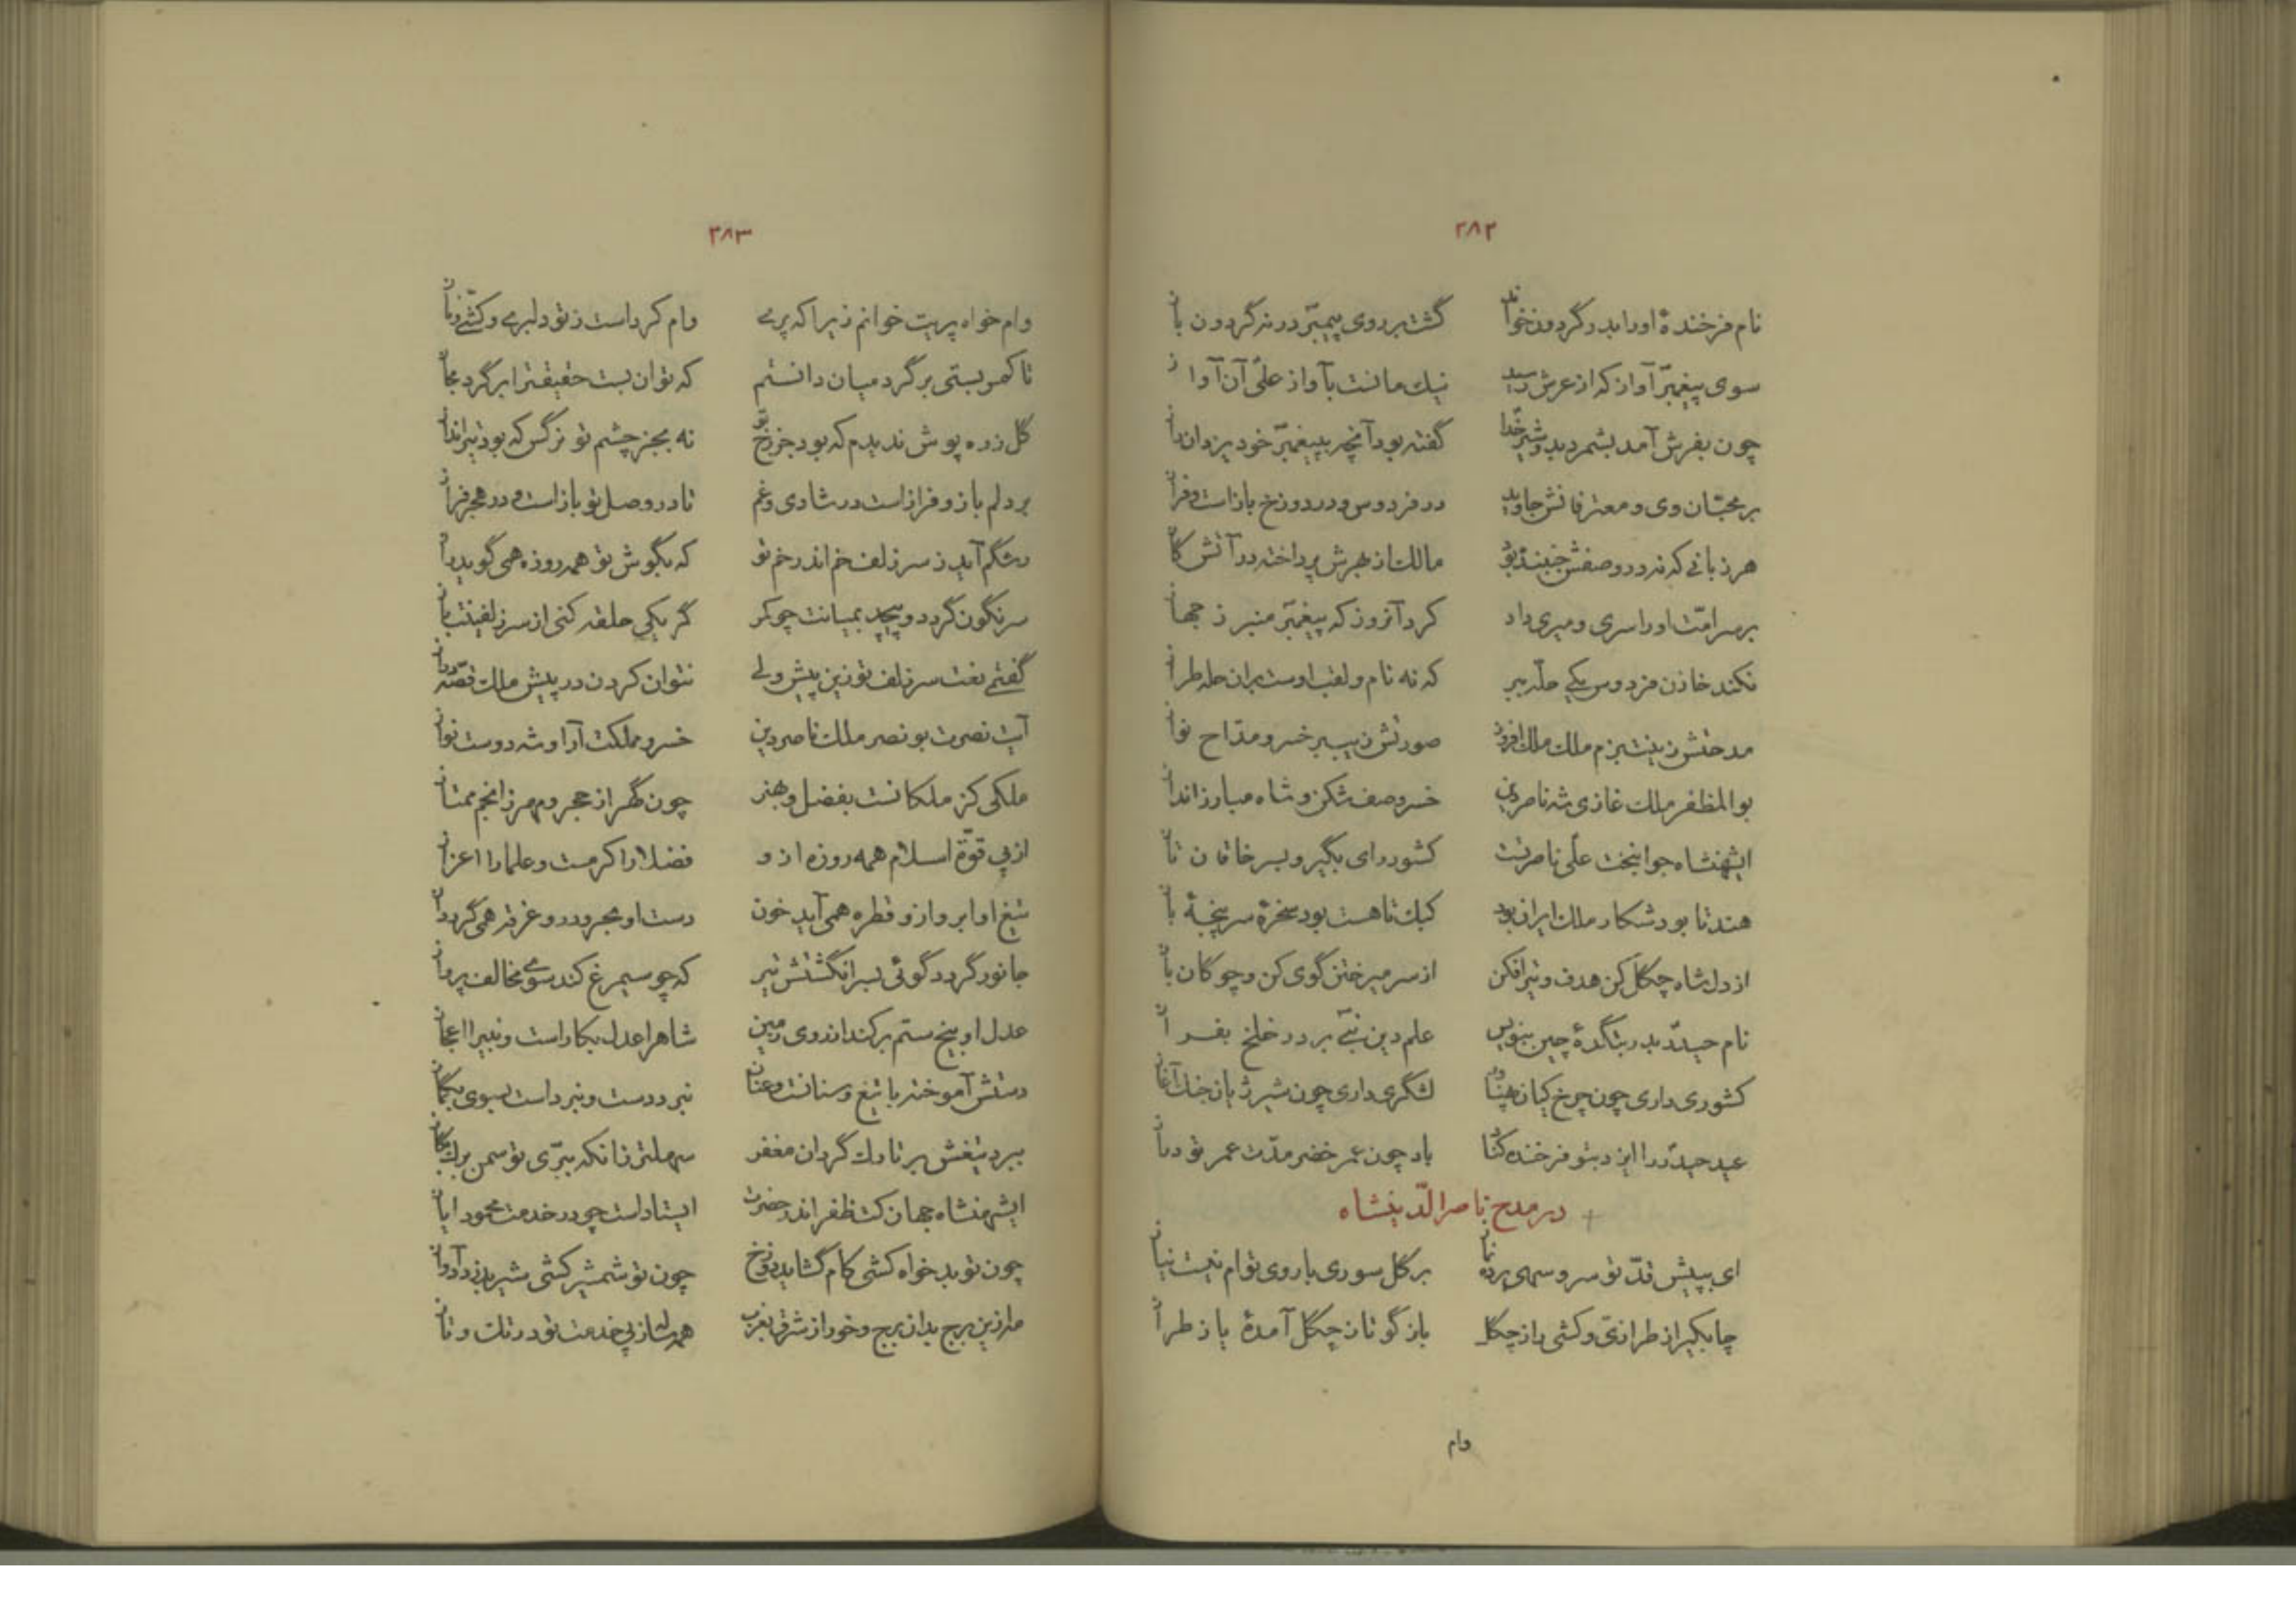 ۲۸۲
نام فرخندهٔ او را بدر گردون خواند گشت بر روی پیمبر در نه گردون باز
سوی پیغمبر آواز که از عرش رسید نیک مانست بآواز علی آن آواز
چون بفرش آمد بشمرد بدو شیر خدا گفته بود آنچه به پیغمبر خود یزدان راز
بر محبّان وی و معترفانش جاوید در فردوس و در دوزخ باز است و فراز
هر زبانی که نه در وصفش جنبد بود مالک از بهرش پرداخته در آتش گاز
بر سر امّت او را سری و میری داد کرد آنروز که پیغمبر منبر ز جهاز
نکند خازن فردوس یکی حلّه ببر که نه نام و لقب اوست بران حله طراز
مدحتش زینت بزم ملک ملک افروز صورتش زیب سر خسرو مدّاح نواز
بوالمظفر ملک غازی شه ناصر دین خسرو صف شکن و شاه مبارز انداز
ایشهنشاه جوانبخت علی ناصر تست کشور رای بگیر و بسر خاقان تاز
هند تا بود شکار ملک ایران بود کبک تا هست بود سخرهٔ سر پنجهٔ باز
از دل شاه چگل کن هدف و تیر افکن از سر میر ختن گوی کن و چوگان باز
نام حیدر بدر بتگدهٔ چین بنویس علم دین نبی بر در خلخ بفراز
کشوری داری چون چرخ کیان پهناور لشگری داری چون شیر ژیان جنگ آغاز
عید حیدر را ایزد بتو فرخنده کناد باد چون عمر خضر مدّت عمر تو دراز
در مدح ناصر الدّینشاه
ای بپیش قدّ تو سرو سهی برده نماز بر گل سوری با روی توام نیست نیاز
چابکی از طرازی و کشی از چگل بازگو تا ز چگل آمدهٔ یا ز طراز
وام
۲۸۳
وام خواه پریت خوانم زیرا که پری وام کرداست ز تو دلبری و کشّی و ناز
تا کمر بستی بر گرد میان دانستم که توان بست حقیقت را بر گرد مجاز
گل زره پوش ندیدم که بود جز رخ تو نه بجز چشم تو نرگس که بود تیر انداز
بر دلم باز و فراز است در شادی و غم تا در وصل تو باز است و در هجر فراز
رشگم آید ز سر زلف خم اندر خم تو که بگوش تو همه روزه همی گوید راز
سرنگون گردد و پیچد بمیانت چو کمر گر یکی حلقه کنی از سر زلفینت باز
گفتمی نعت سر زلف تو زین پیش ولی نتوان کردن در پیش ملک قصّه دراز
آیت نصرت بو نصر ملک ناصر دین خسرو مملکت آرا و شه دوست نواز
ملکی کز ملکانست بفضل و هنر چون گهر از حجر و مهر ز انجم ممتاز
از پی قوّة اسلام همه روزه ازو فضلا را کرمست و علما را اعزاز
تیغ او ابر و ازو قطره همی آید خون دست او بحر و درو غرقه همی گردد آز
جانور گردد گوئی بسر انگشتش تیر که چو سیمرغ کند سوی مخالف پرواز
عدل او بیخ ستم برکند از روی زمین شاه را عدل بکار است و نبی را اعجاز
دستش آموخته با تیغ و سنانست و عنان نبرد دست و نبرداست بسوی بگماز
ببرد تیغش بر تارک گردان مغفر سهلتر زانکه ببرّی تو سمن برگ بگاز
ایشهنشاه جهان کت ظفر اندر حضرت ایستاداست چو در خدمت محمود ایاز
چون تو بدخواه کشی کام گشاید دوزخ چون تو شمشیر کشی شیر بدزدد آواز
مه ازین برج بدان برج و خور از شرق بغرب همه سال از پی خدمت تو در تک و تاز